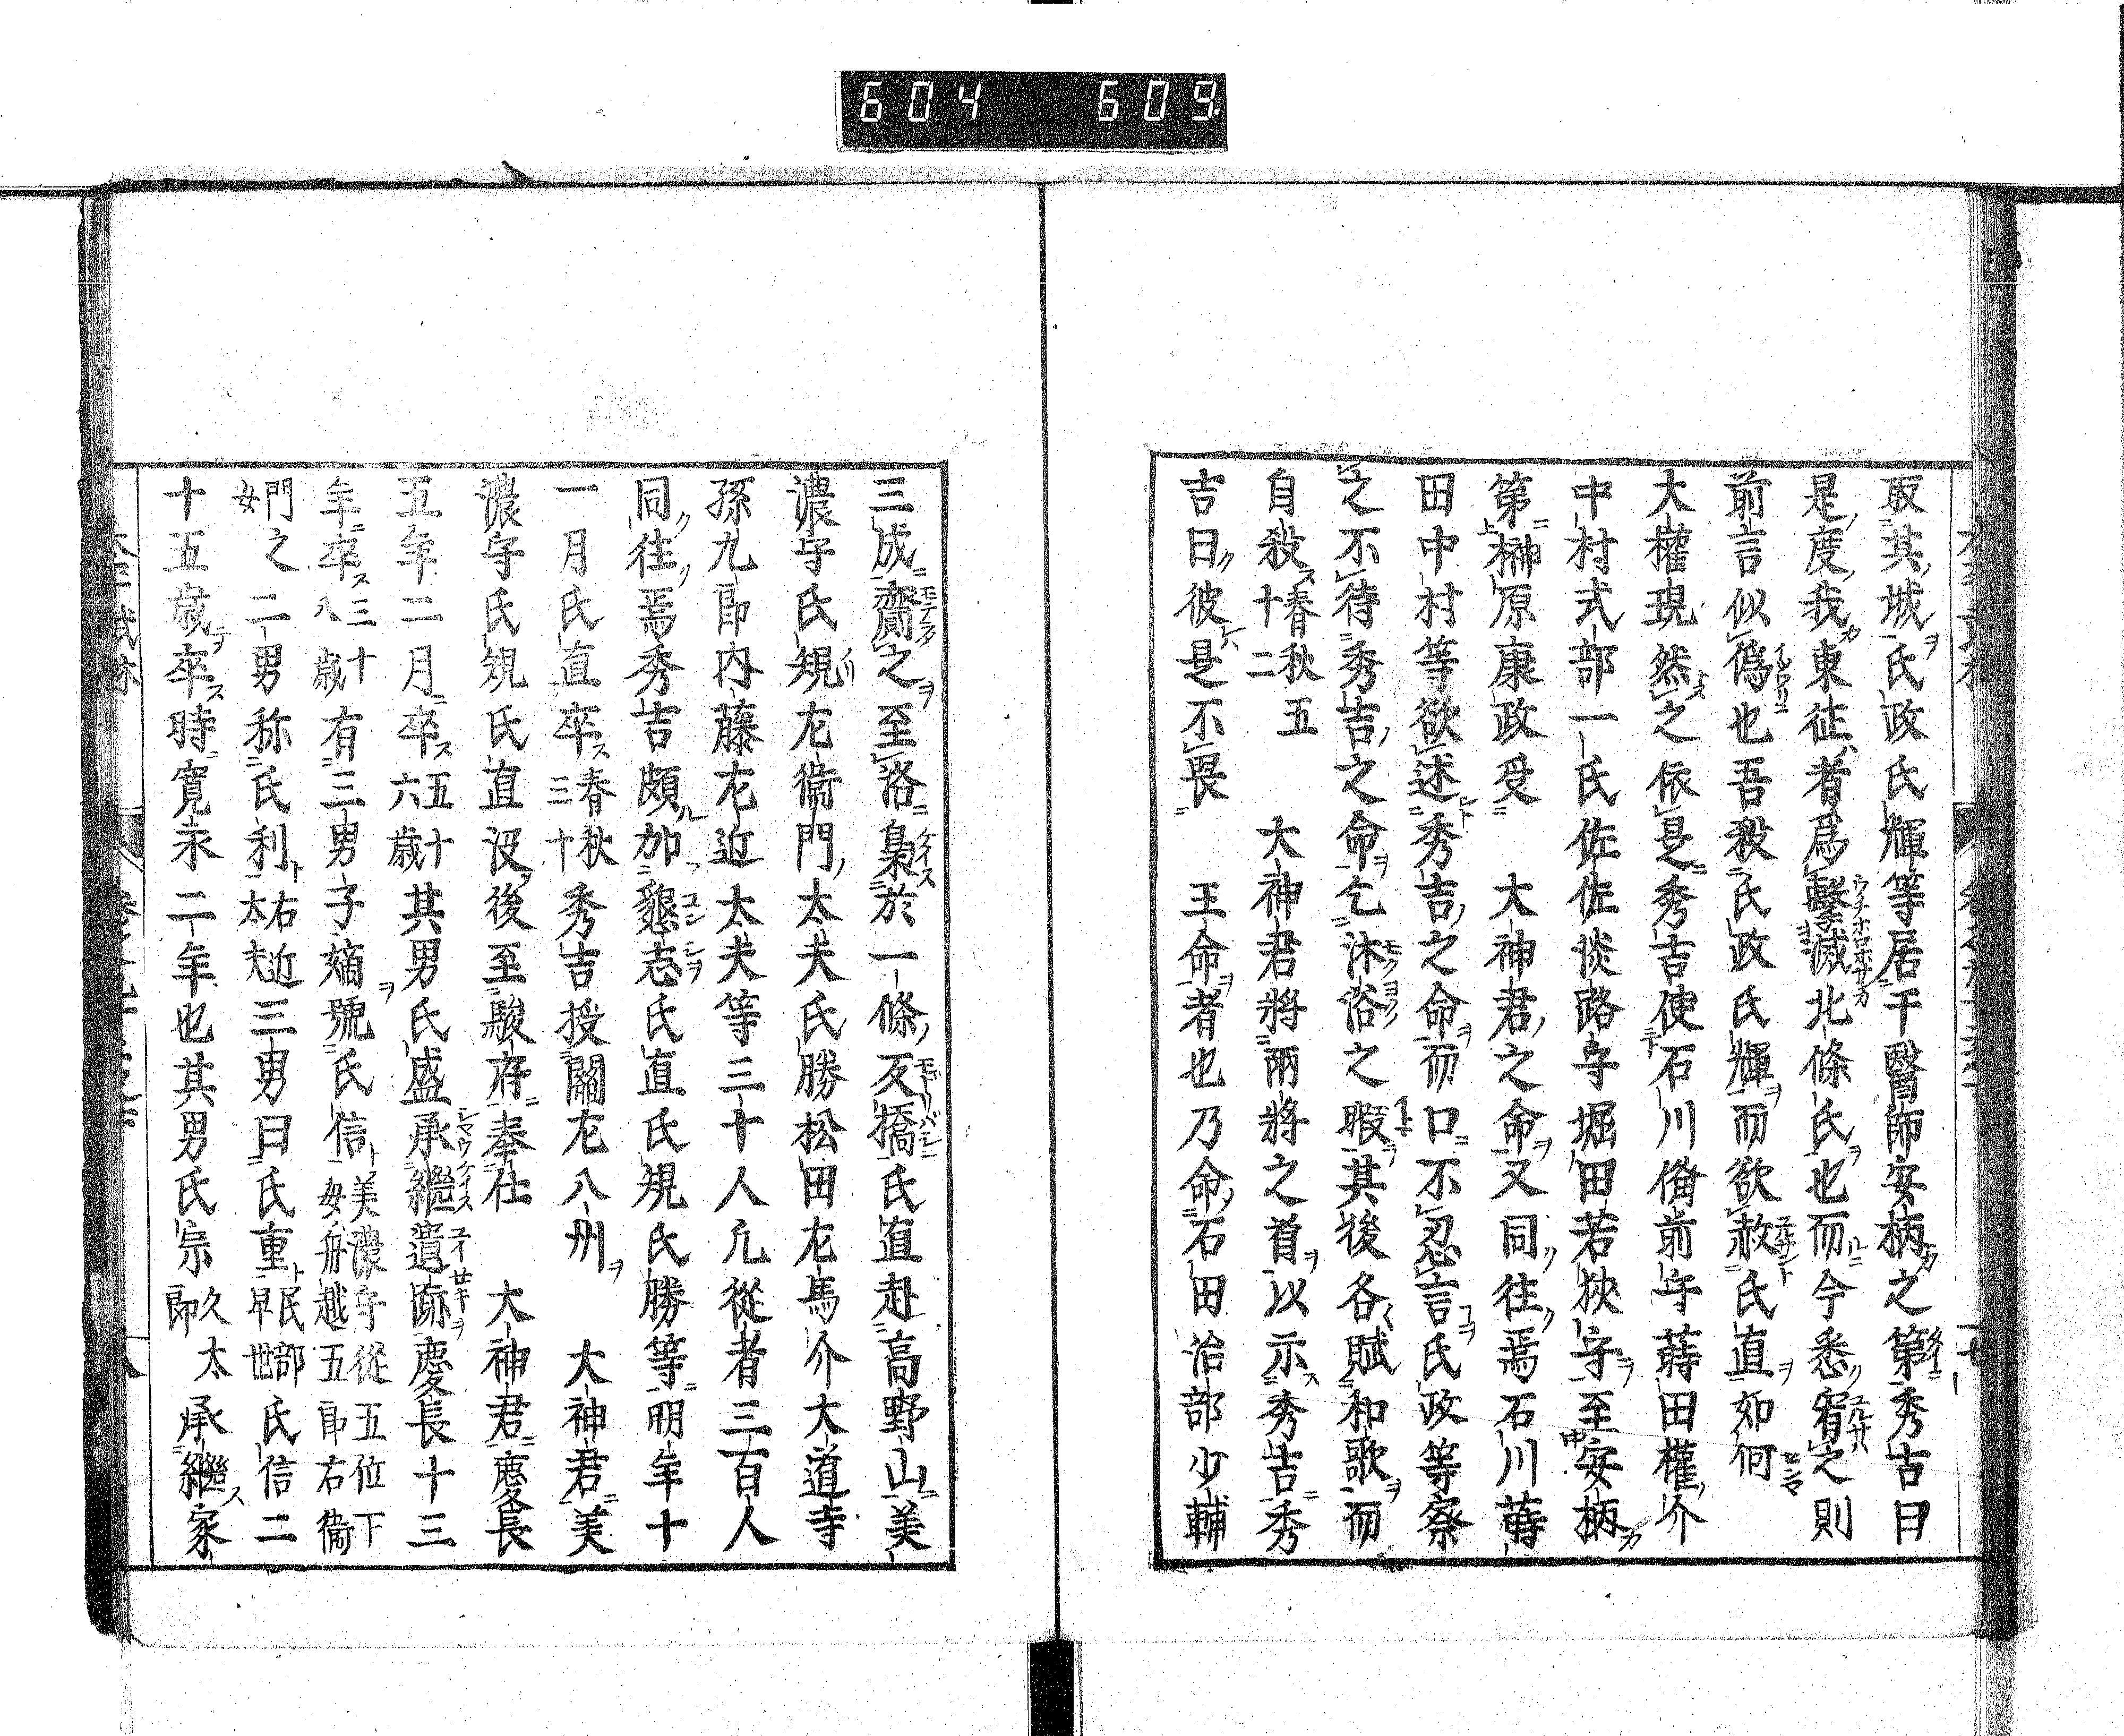 604 609
取其城氏政氏輝等居于醫師安栖之第秀吉曰
是度我東征者爲擊滅北條氏也而今悉宥之則
前言似僞也吾殺氏政氏輝而欲赦氏直如何
大權現然之依是秀吉使石川備前守蒔田權介
中村式部一氏佐佐淡路守堀田若狹守至安栖
第榊原康政受 大神君之命又同往焉石川蒔
田中村等欲述秀吉之命而口不忍言氏政等察
之不待秀吉之命乞沐浴之暇其後各賦和歌而
自殺春秋五十二 大神君將兩將之首以示秀吉秀
吉曰彼是不畏 王命者也乃命石田治部少輔
三成齎之至洛梟於一條反橋氏直赴高野山美
濃守氏規左衞門太夫氏勝松田左馬介大道寺
孫九郎内藤左近太夫等三十人凡從者三百人
同往焉秀吉頗加懇志氏直氏規氏勝等明年十
一月氏直卒春秋三十秀吉授關左八州 大神君美
濃守氏規氏直沒後至駿府奉仕 大神君慶長
五年二月卒五十六歳其男氏盛承繼遺跡慶長十三
年卒三十八歳有三男子嫡號氏信美濃守從五位下母舟越五郎右衞
門之女二男称氏利右近太夫三男曰氏重民部早世氏信二
十五歳卒時寛永二年也其男氏宗久太郎承繼家